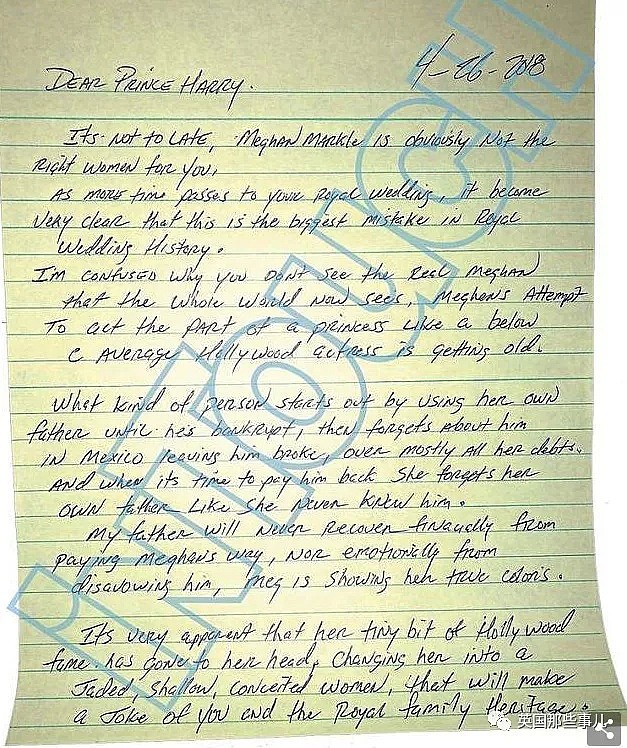 4-26-2018
DEAR PRINCE HARRY.
Its not to LATE, MeghAN MARKle is obviously Not the
Right women for you,
As more time passes to your Royal wedding, it become
very clear that this is the biggest mistake in Royal
Wedding History.
I'm confused why you Dont see the Real Meghan
that the whole world Now sees, Meghan's Attempt
To act the PART of a princess Like a below
C Average Hollywood actress is getting old.
What kind of person starts out by using her own
father until he's bankrupt, then forgets about him
IN Mexico leaving him broke, over mostly all her debts.
AND when its time to pay him back She forgets her
own father Like She Never Knew him.
My father will Never Recover finacually from
paying Meghans way, NOR emotionally from
disavowing him, Meg is Showing her true colors.
It's very apparent that her tiny bit of Hollywood
fame has gone to her head, Changing her into a
Jaded, Shallow, conceited women, that will make
a Joke of you and the Royal family Heritage.
INTOUCH
英国那些事儿